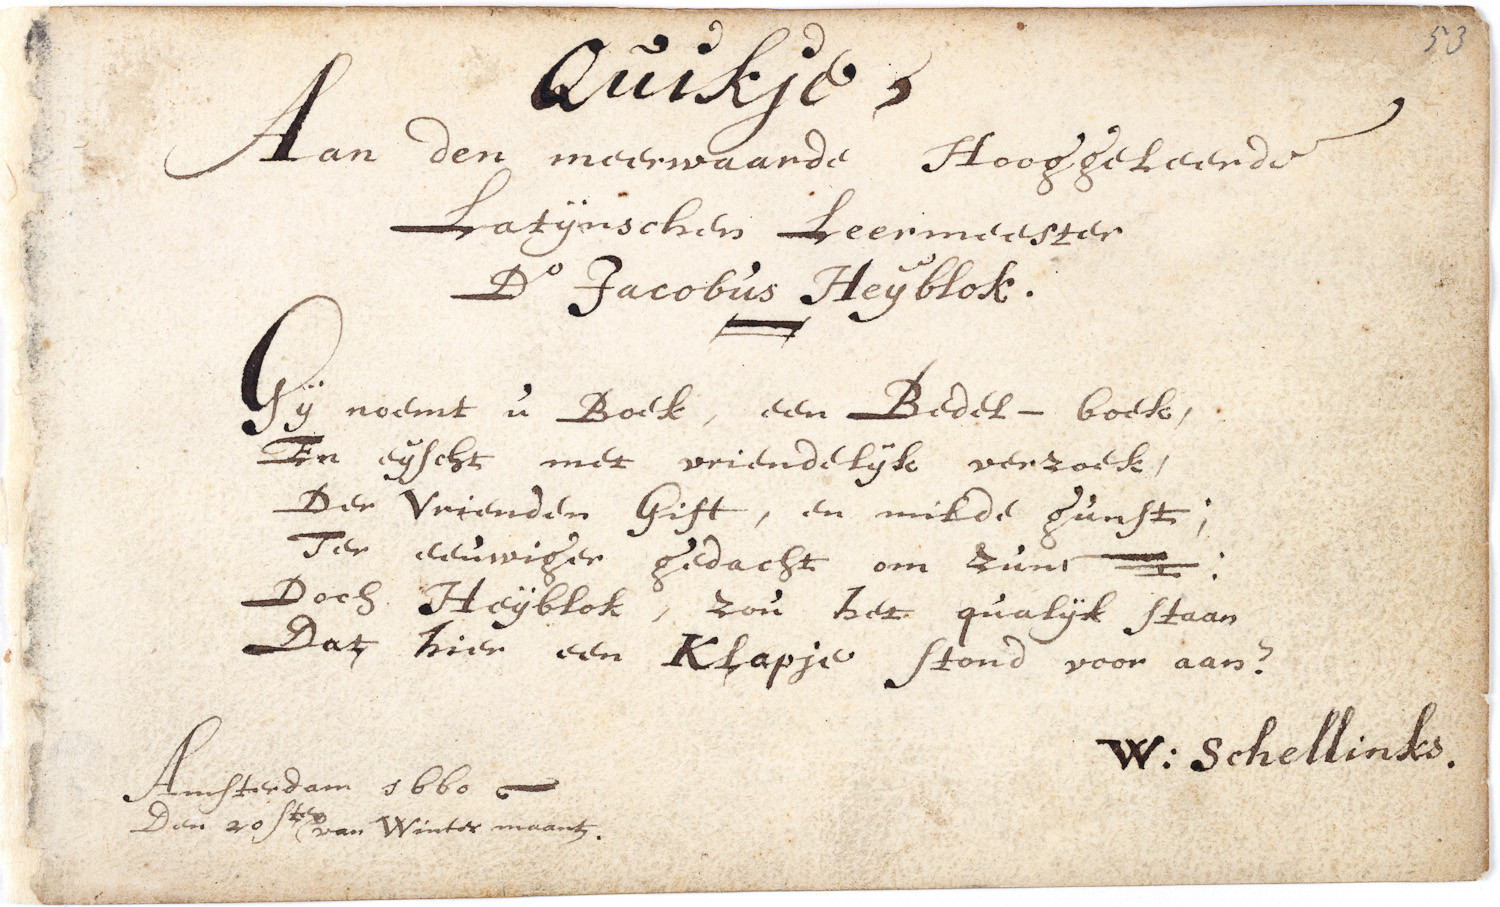 53
Quikje,
Aan den meerwaarde Hooggeleerde
Latÿnschen Leermeester
Do Jacobus Heÿblok.
Gÿ noemt u Boek, een Bedel-boek,
En eÿscht met vriendelÿk verzoek,
Der Vrienden Gift, en milde gunst;
Ter eeuwiger gedacht om zunt:
Doch Heÿblok, zou het qualÿk staan
Dat hier een Klapje stond voor aan?
W: Schellinks.
Amsterdam 1660
Den 20sten van Winter maant.